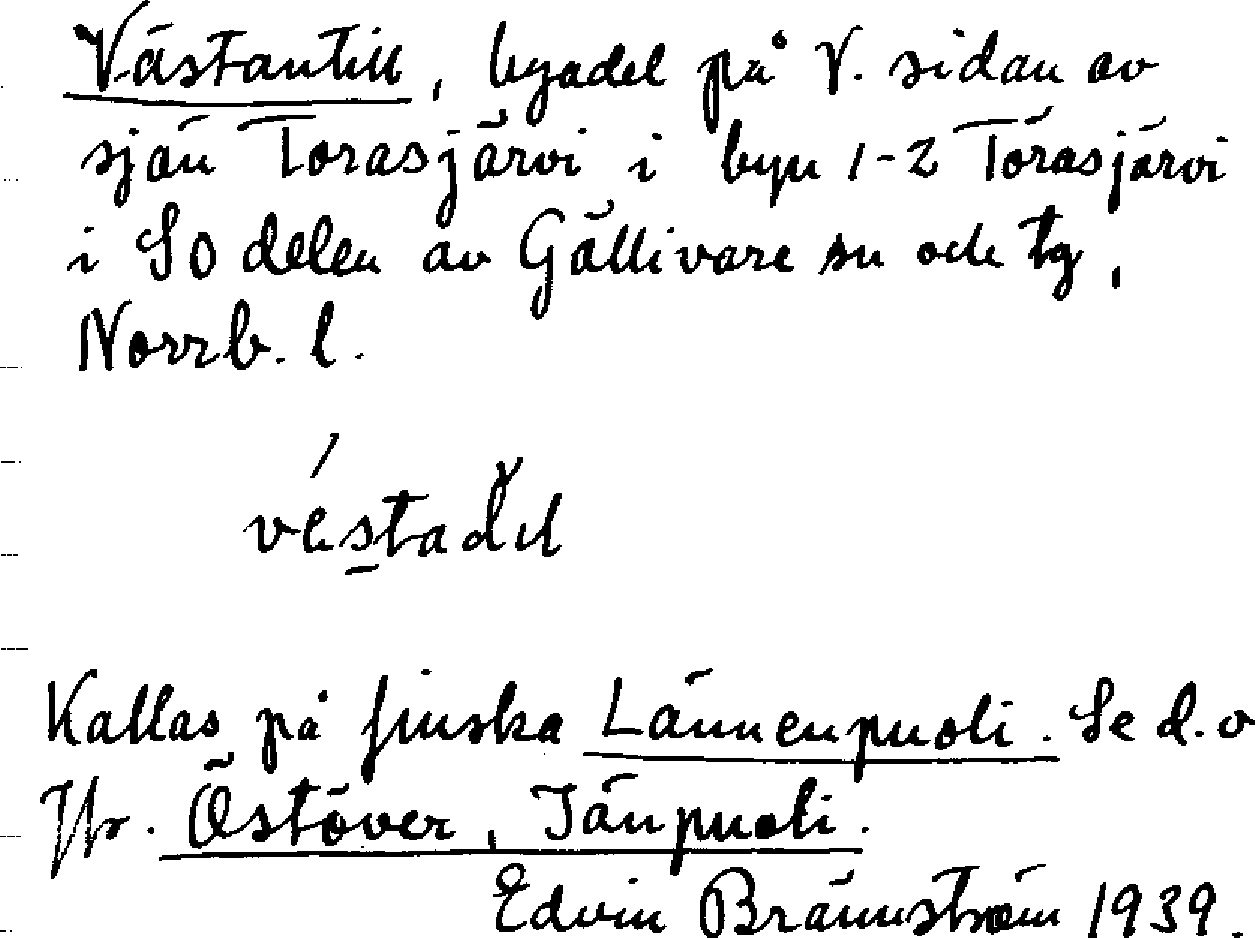 Västantill, byadel på V. sidan av
sjön Torasjärvi i byn 1-2 Torasjärvi
i SO delen av Gällivare sn och tg,
Norrb. l.
Kallas på finska Lännenpuoli. Se d.o
Jfr. Östöver, Idänpuoli.
Edvin Brännström 1939.